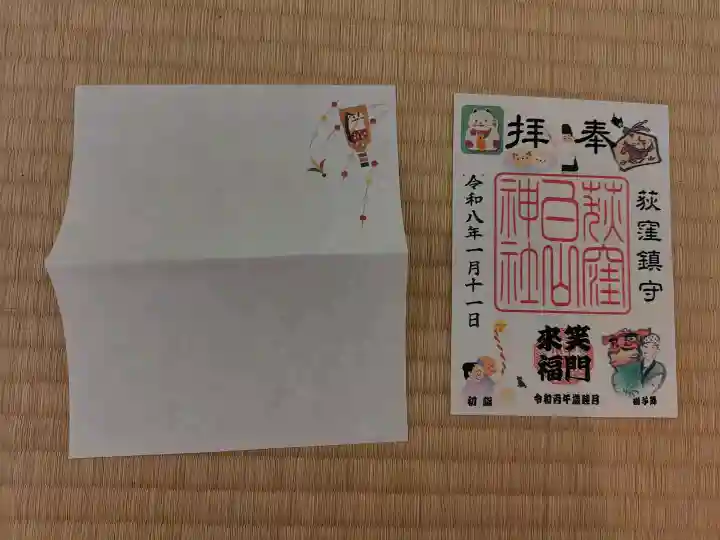 奉拝
荻窪鎮守
荻窪
白山
神社
令和八年一月十一日
笑門
来福
初詣
令和丙午歳睦月
獅子舞